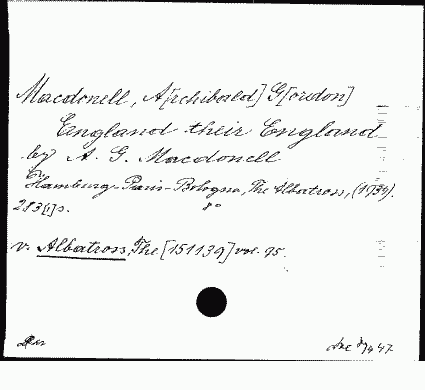 Macdonell, A[rchibald] G[ordon]
England their England
by A. G. Macdonell
Hamburg-Paris-Bologna, The Albatross, (1934).
283[1]s. 8°
v. Albatross, The [151139] vol. 95.